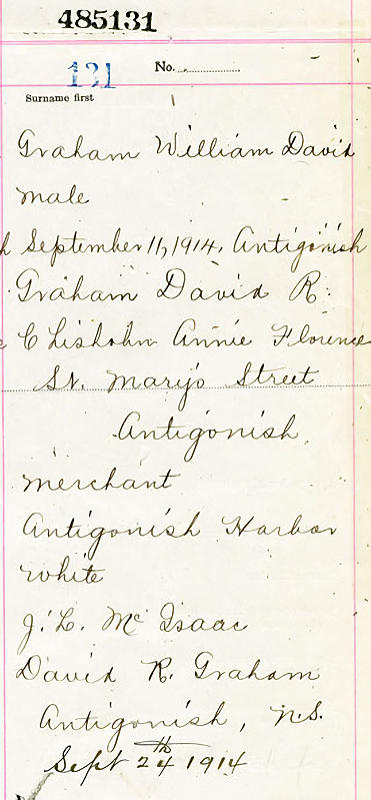 485131
121 No.
Surname first
Graham William David
male
h September 11, 1914, Antigonish
Graham David R.
Chisholm Annie Florence
St. Mary's Street
Antigonish,
merchant
Antigonish Harbor
white
J. L. McIsaac
David R. Graham
Antigonish, N.S.
Sept 24th 1914